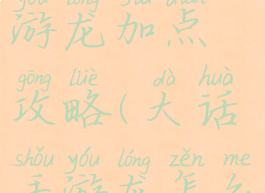 yóu lóng jiā diǎn
游龙加点
gōng lüè dà huà
攻略(大话
shǒu yóu lóng zěn me
手游龙怎么